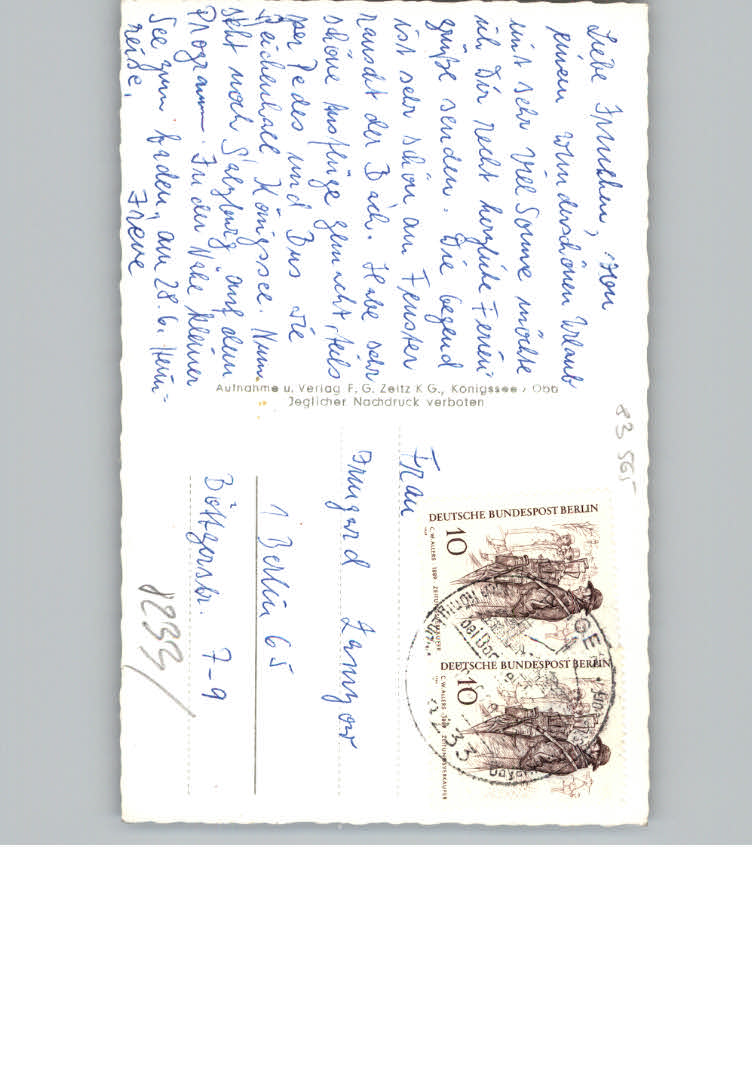 Liebe Irmchen, von
einem wunderschönen Urlaub
mit sehr viel Sonne möchte
ich Dir recht herzliche Ferien
grüße senden. Die Gegend
ist sehr schön, am Fenster
rauscht der Bach. Habe sehr
schöne Ausflüge gemacht, teils
per Pedes und Bus wie
Reichenhall Königssee. Nun
steht noch Salzburg auf dem
Programm. In der Nähe kleiner
See zum baden, am 28.6. Heim-
reise.
Irene
Aufnahme u. Verlag F. G. Zeitz K G., Königssee / Obb
Jeglicher Nachdruck verboten
83 565
Frau
Irmgard
1 Berlin 65
Böttgerstr. 7-9
8233/
DEUTSCHE BUNDESPOST BERLIN
10
C.W.ALLERS 1889 ZEITUNGSVERKÄUFER
DEUTSCHE BUNDESPOST BERLIN
10
C.W.ALLERS 1889 ZEITUNGSVERKÄUFER